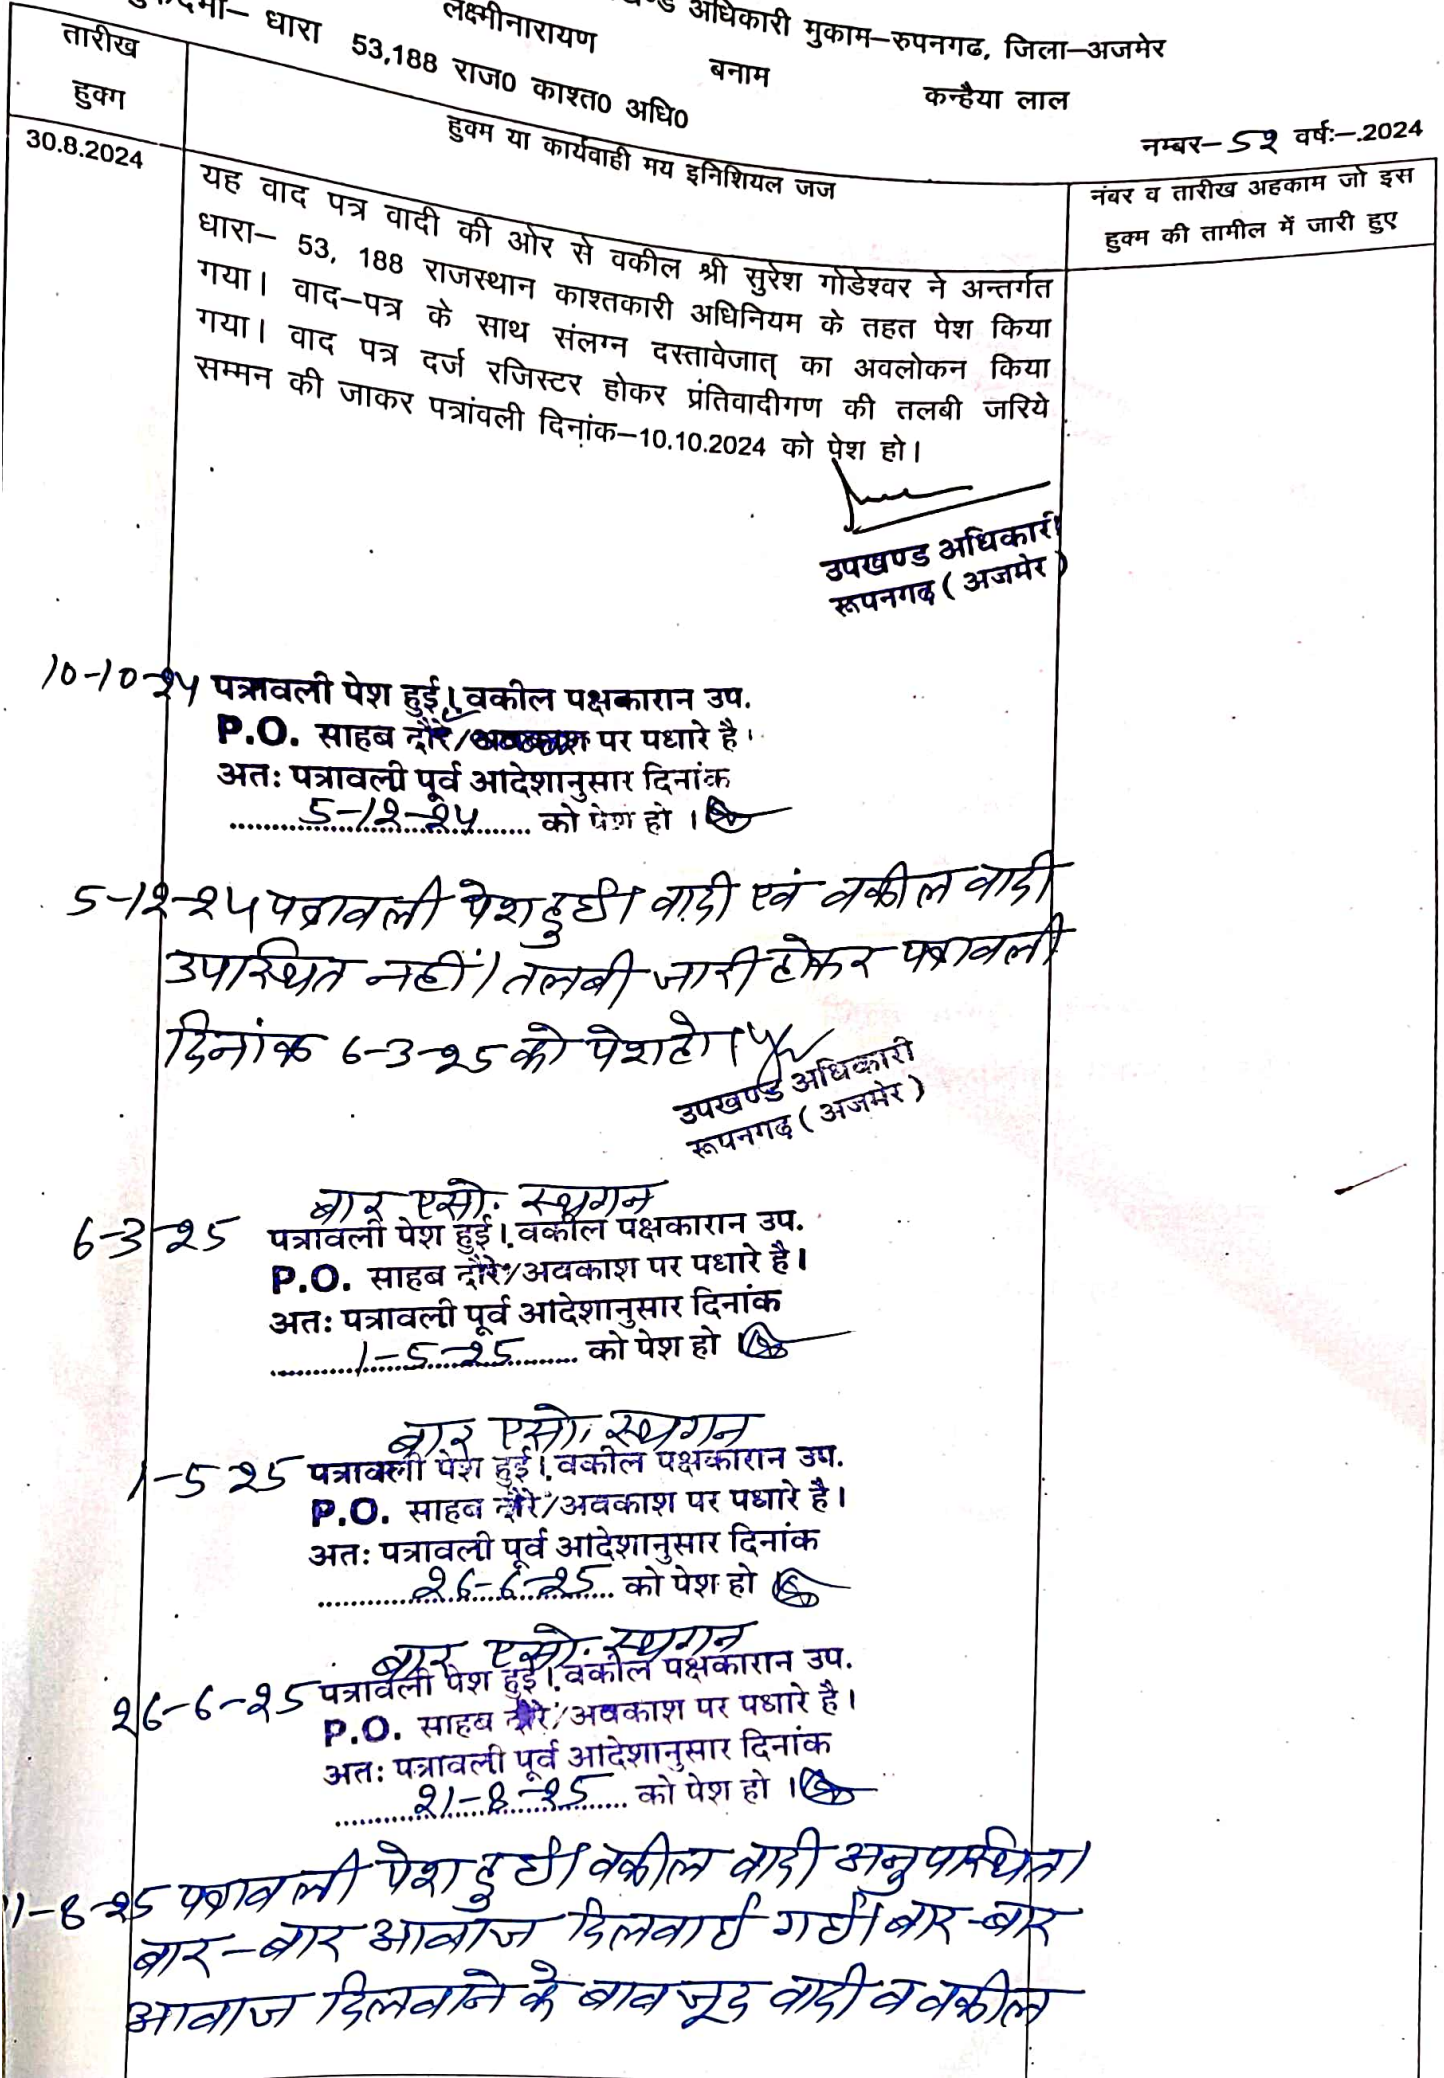 अधिकारी मुकाम–रुपनगढ, जिला–अजमेर
लक्ष्मीनारायण बनाम कन्हैया लाल
धारा 53,188 राज0 काश्त0 अधि0
नम्बर–52 वर्षः–.2024
तारीख
हुक्म
हुक्म या कार्यवाही मय इनिशियल जज
नंबर व तारीख अहकाम जो इस
हुक्म की तामील में जारी हुए
30.8.2024
यह वाद पत्र वादी की ओर से वकील श्री सुरेश गोडेश्वर ने अन्तर्गत
धारा– 53, 188 राजस्थान काश्तकारी अधिनियम के तहत पेश किया
गया। वाद–पत्र के साथ संलग्न दस्तावेजात् का अवलोकन किया
गया। वाद पत्र दर्ज रजिस्टर होकर प्रंतिवादीगण की तलबी जरिये
सम्मन की जाकर पत्रांवली दिनांक–10.10.2024 को पेश हो।
उपखण्ड अधिकारी
रूपनगढ़ (अजमेर)
10-10-24 पत्रावली पेश हुई। वकील पक्षकारान उप.
P.O. साहब दौरे/अवकाश पर पधारे है।
अतः पत्रावली पूर्व आदेशानुसार दिनांक
5-12-24 को पेश हो।
5-12-24 पत्रावली पेश हुई। वादी एवं वकील वादी
उपस्थित नहीं। तलबी जारी होकर पत्रावली
दिनांक 6-3-25 को पेश हो।
उपखण्ड अधिकारी
रूपनगढ़ (अजमेर)
बार एसो. स्थगन
6-3-25 पत्रावली पेश हुई। वकील पक्षकारान उप.
P.O. साहब दौरे/अवकाश पर पधारे है।
अतः पत्रावली पूर्व आदेशानुसार दिनांक
1-5-25 को पेश हो
बार एसो. स्थगन
1-5-25 पत्रावली पेश हुई। वकील पक्षकारान उप.
P.O. साहब दौरे/अवकाश पर पधारे है।
अतः पत्रावली पूर्व आदेशानुसार दिनांक
26-6-25 को पेश हो
बार एसो. स्थगन
26-6-25 पत्रावली पेश हुई। वकील पक्षकारान उप.
P.O. साहब दौरे/अवकाश पर पधारे है।
अतः पत्रावली पूर्व आदेशानुसार दिनांक
21-8-25 को पेश हो।
1-8-25 पत्रावली पेश हुई। वकील वादी अनुपस्थित।
बार-बार आवाज दिलवाई गई। बार-बार
आवाज दिलवाने के बावजूद वादी व वकील